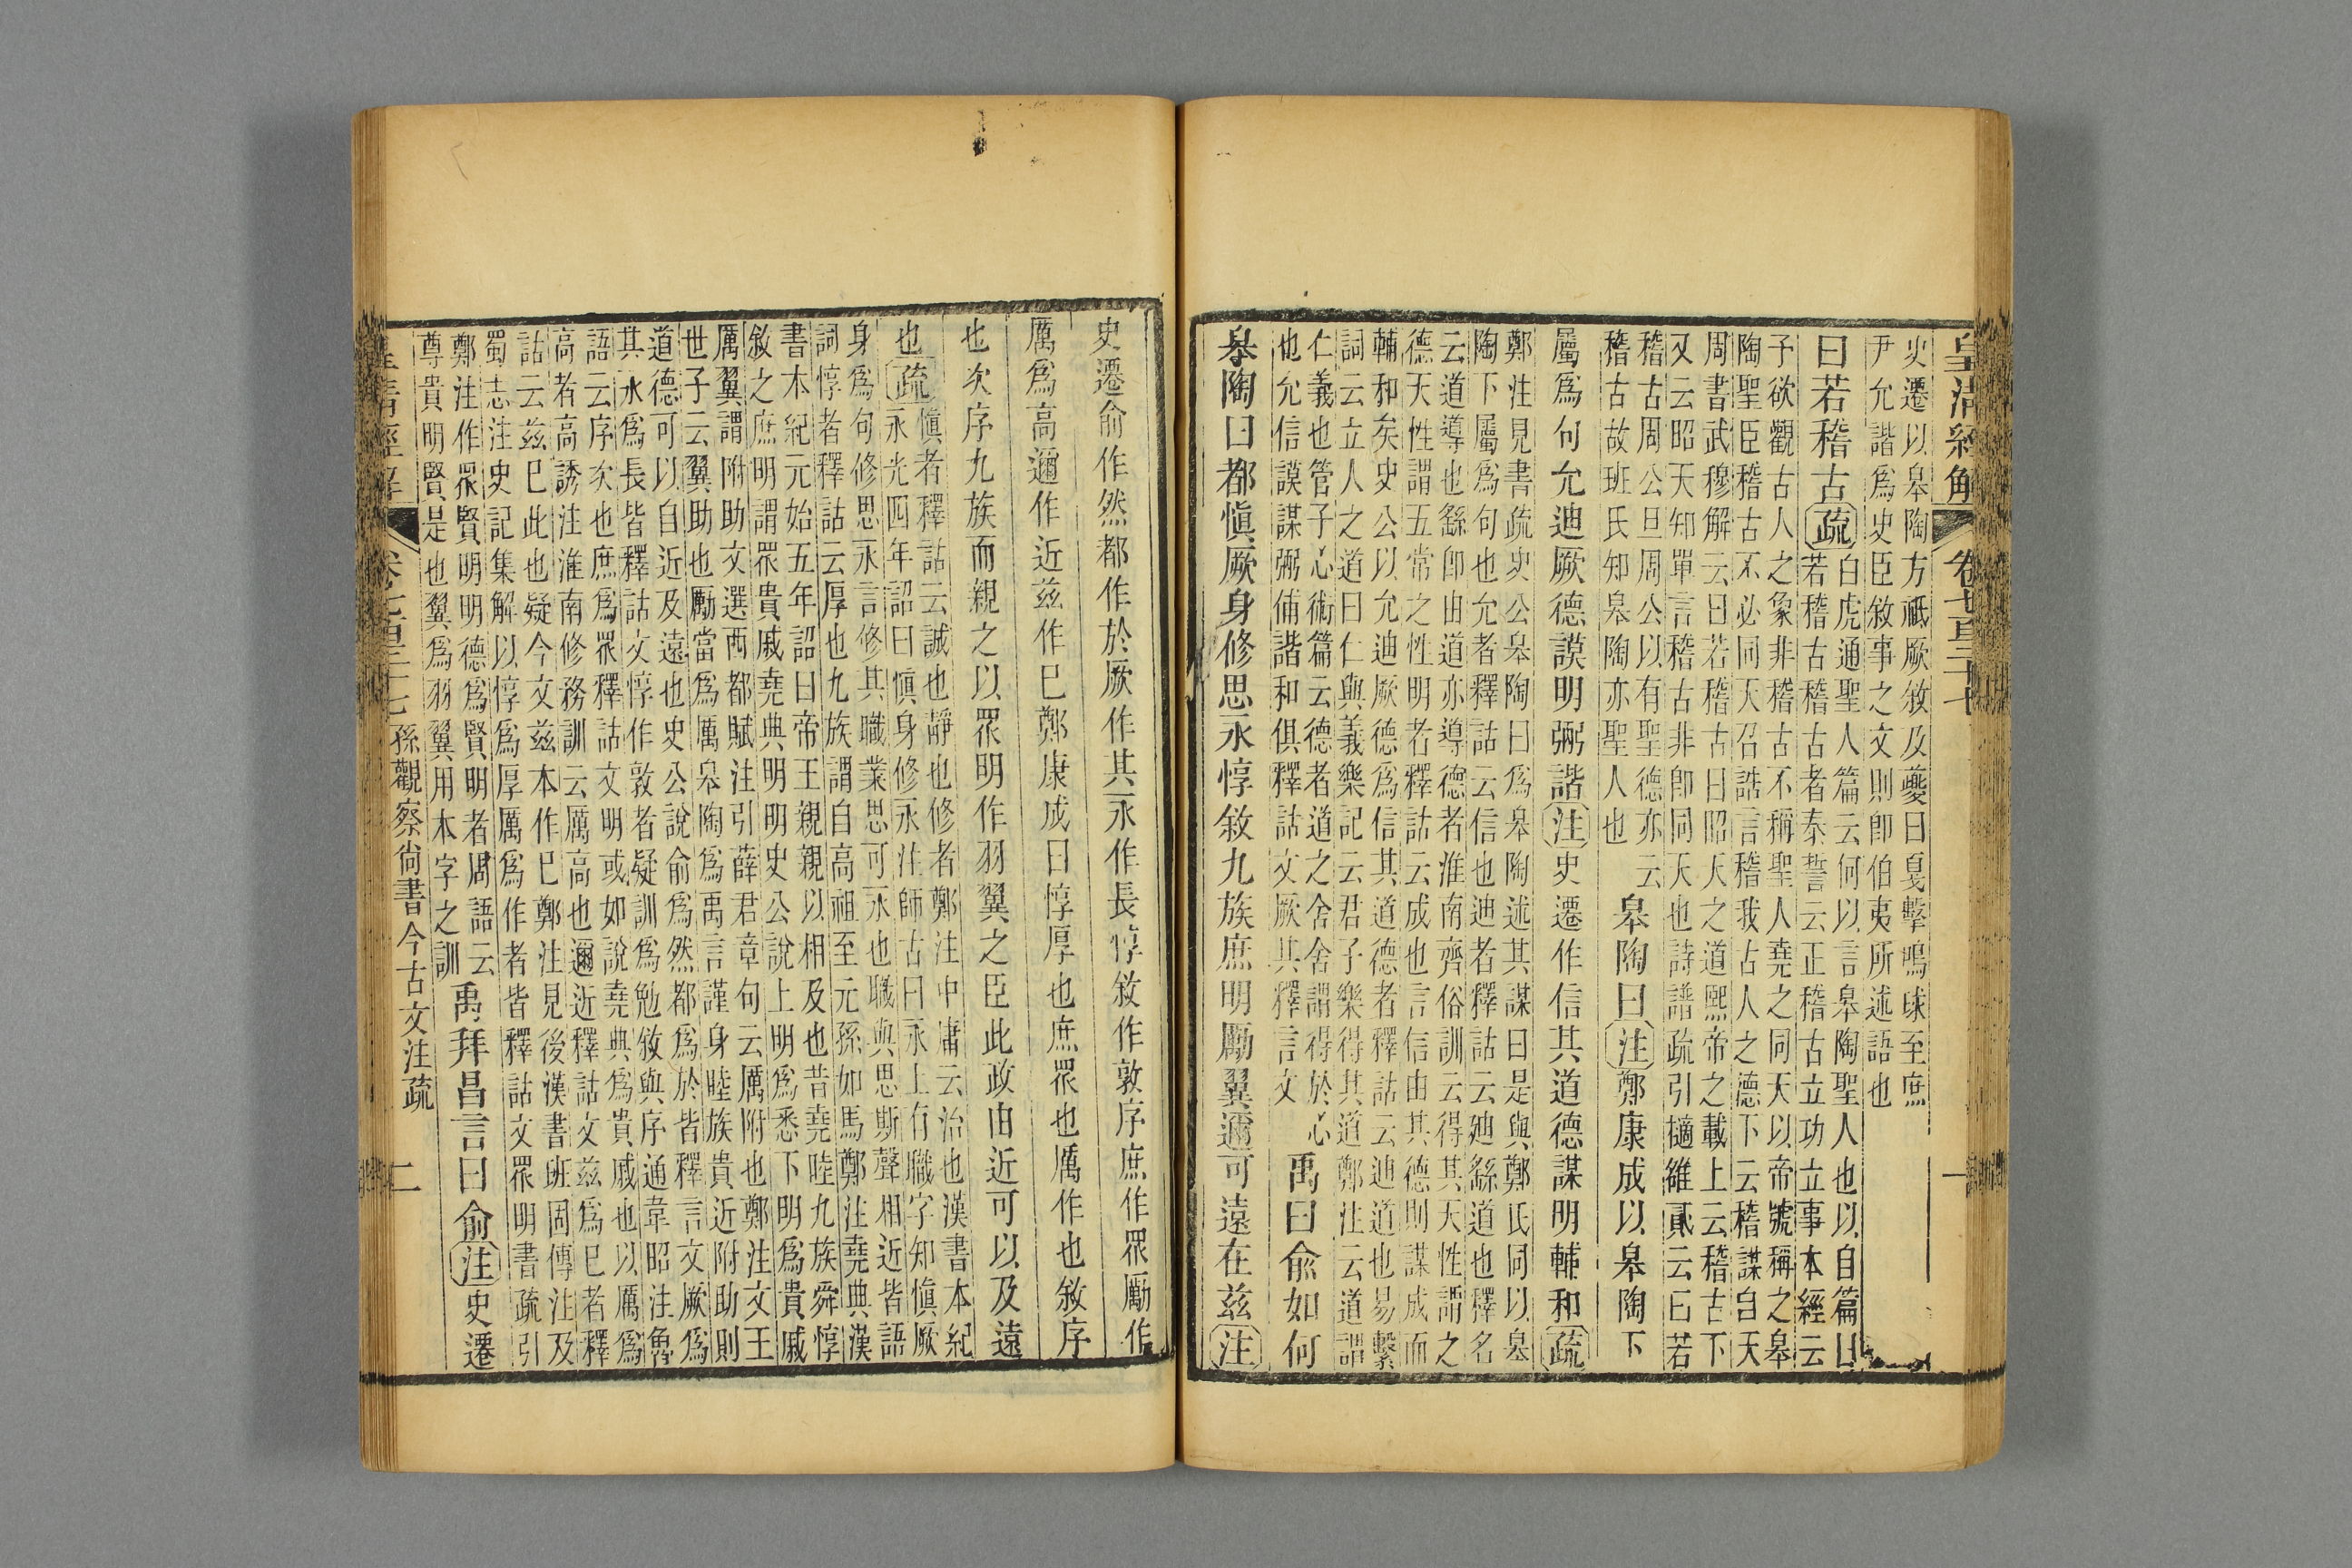 皇清經解 卷七百三十七 一
史遷以皋陶方祗厥敘及夔曰戛擊鳴球至庶
尹允諧爲史臣敘事之文則卽伯夷所述語也
曰若稽古疏
白虎通聖人篇云何以言皋陶聖人也以自篇曰
若稽古稽古者泰誓云正稽古立功立事本經云
予欲觀古人之象非稽古不稱聖人堯之同天以帝號稱之皋
陶聖臣稽古不必同天召誥言稽我古人之德下云稽謀自天
周書武穆解云曰若稽古曰昭天之道熙帝之載上云稽古下
又云昭天知單言稽古非卽同天也詩譜疏引擿雒貳云曰若
稽古周公旦周公以有聖德亦云
稽古故班氏知皋陶亦聖人也
皋陶曰注鄭康成以皋陶下
屬爲句允迪厥德謨明弼諧注史遷作信其道德謀明輔和疏
鄭注見書疏史公皋陶曰爲皋陶述其謀曰是與鄭氏同以皋
陶下屬爲句也允者釋詁云信也迪者釋詁云廸繇道也釋名
云道導也繇卽由道亦導德者淮南齊俗訓云得其天性謂之
德天性謂五常之性明者釋詁云成也言信由其德則謀成而
輔和矣史公以允迪厥德爲信其道德者釋詁云迪道也易繫
詞云立人之道曰仁與義樂記云君子樂得其道鄭注云道謂
仁義也管子心術篇云德者道之舍舍謂得於心
也允信謨謀弼俌諧和俱釋詁文厥其釋言文
禹曰兪如何
皋陶曰都愼厥身修思永惇敘九族庶明勵翼邇可遠在兹注
史遷兪作然都作於厥作其永作長惇敘作敦序庶作眾勵作
厲爲高邇作近兹作巳鄭康成曰惇厚也庶眾也厲作也敘序
也次序九族而親之以眾明作羽翼之臣此政由近可以及遠
也疏
愼者釋詁云誠也靜也修者鄭注中庸云治也漢書本紀
永光四年詔曰愼身修永注師古曰永上有職字知愼厥
身爲句修思永言修其職業思可永也職與思斯聲相近皆語
詞惇者釋詁云厚也九族謂自高祖至元孫如馬鄭注堯典漢
書本紀元始五年詔曰帝王親親以相及也昔堯睦九族舜惇
敘之庶明謂眾貴戚堯典明明史公說上明爲悉下明爲貴戚
厲翼謂附助文選西都賦注引薛君章句云厲附也鄭注文王
世子云翼助也勵當爲厲皋陶爲禹言謹身睦族貴近附助則
道德可以自近及遠也史公說兪爲然都爲於皆釋言文厥爲
其永爲長皆釋詁文惇作敦者疑訓爲勉敘與序通韋昭注魯
語云序次也庶爲眾釋詁文明或如說堯典爲貴戚也以厲爲
高者高誘注淮南修務訓云厲高也邇近釋詁文兹爲巳者釋
詁云兹巳此也疑今文兹本作巳鄭注見後漢書班固傳注及
蜀志注史記集解以惇爲厚厲爲作者皆釋詁文眾明書疏引
鄭注作眾賢明明德爲賢明者周語云
尊貴明賢是也翼爲羽翼用本字之訓
禹拜昌言曰兪注史遷
皇清經解 卷七百三十七 孫觀察尚書今古文注疏 二